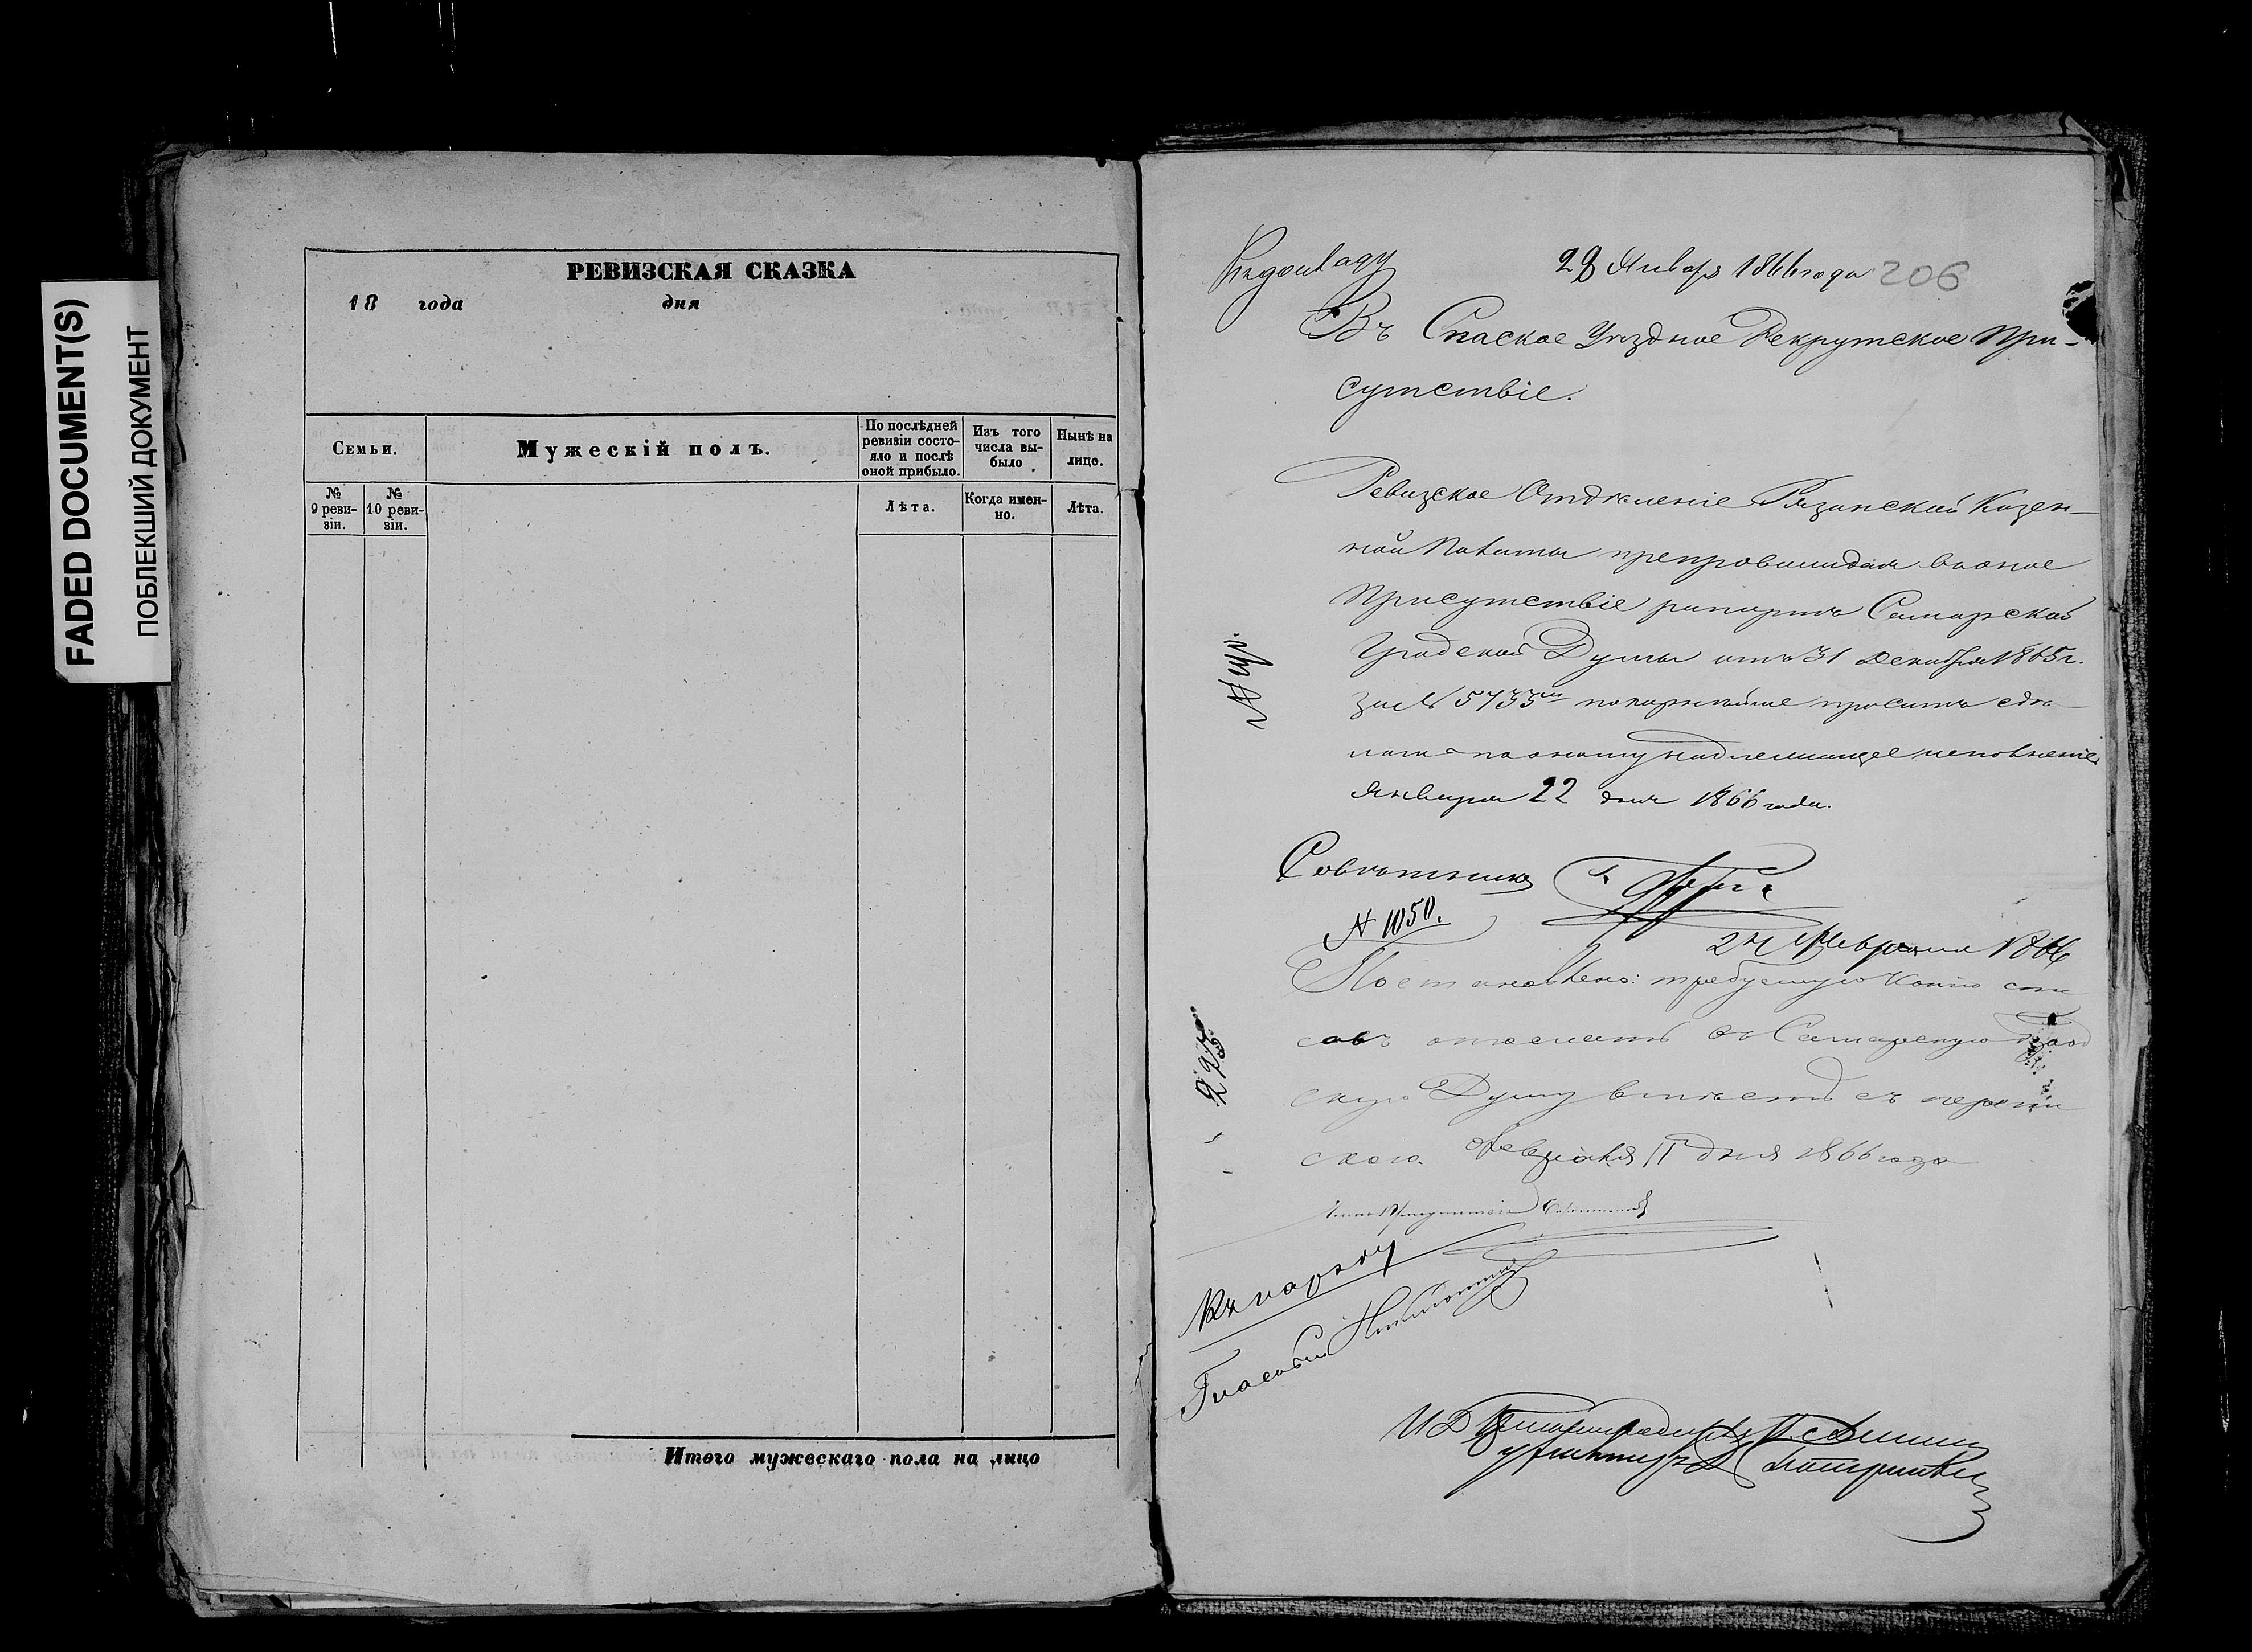 FADED DOCUMENT(S)
ПОБЛЕКШИЙ ДОКУМЕНТ
РЕВИЗСКАЯ СКАЗКА
18 года дня
Семьи.
Мужескій полъ.
По послѣдней
ревизіи состо-
яло и послѣ
оной прибыло.
Изъ того
числа вы-
было.
Нынѣ на
лицо.
№
9 реви-
зіи.
№
10 реви-
зіи.
Лѣта.
Когда имен-
но.
Лѣта.
Итого мужескаго пола на лицо
Къ докладу
28 Январь 1866 года
206
Въ Спаское Уѣздное Рекрутское При-
сутствіе.
Ревизское Отдѣленіе Рязанской Казен-
ной Палаты препровождая во оное
Присутствіе рапортъ Самарской
Градской Думы отъ 31 Декабря 1865 г.
за № 5733 покорнѣйше проситъ сдѣ-
лать по оному надлежащее исполненіе
Января 22 дня 1866 года.
Совѣтникъ
№ 1050.
24 Февраля 1866
Постановлено: требуемую копію
отослать въ Самарскую Град
скую Думу вмѣстѣ съ
Февраля 11 дня 1866 года
223
Къ наряду
Гласный
И Д